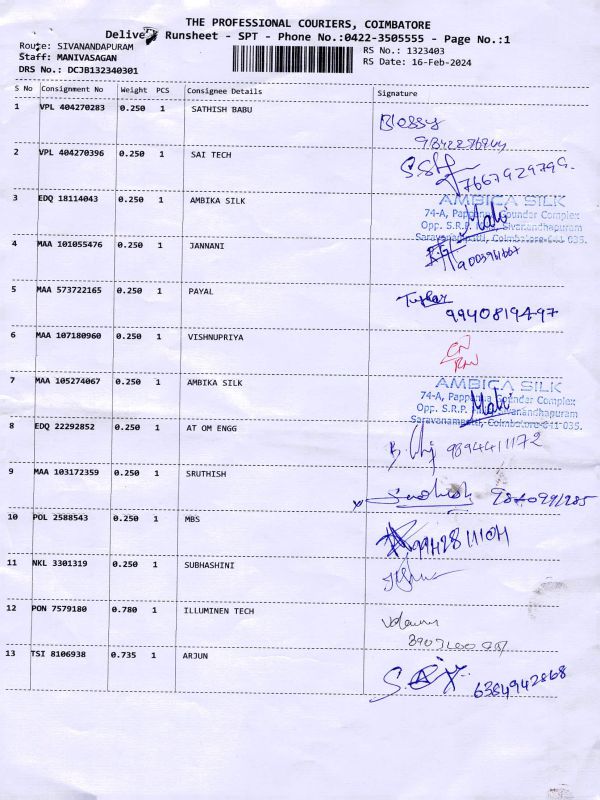 THE PROFESSIONAL COURIERS, COIMBATORE
Runsheet - SPT - Phone No.:0422-3505555 - Page No.:1
Route: SIVANANDAPURAM
Staff: MANIVASAGAN
DRS No.: DCJB132340301
RS No.: 1323403
RS Date: 16-Feb-2024
S No Consignment No Weight PCS Consignee Details Signature
1 VPL 404270283 0.250 1 SATHISH BABU
Blessy
2 VPL 404270396 0.250 1 SAI TECH
7667929799.
3 EDQ 18114043 0.250 1 AMBIKA SILK
AMBICA SILK
74-A, Gounder Complex
Opp. S.R.P. Sivanandhapuram
Saravanampatti, Coimbatore-641 035.
Mali
4 MAA 101055476 0.250 1 JANNANI
5 MAA 573722165 0.250 1 PAYAL
9940819497
6 MAA 107180960 0.250 1 VISHNUPRIYA
7 MAA 105274067 0.250 1 AMBIKA SILK
AMBICA SILK
74-A, Gounder Complex
Opp. S.R.P. Sivanandhapuram
Saravanampatti, Coimbatore-641 035.
Mali
8 EDQ 22292852 0.250 1 AT OM ENGG
9894411172
9 MAA 103172359 0.250 1 SRUTHISH
10 POL 2588543 0.250 1 MBS
11 NKL 3301319 0.250 1 SUBHASHINI
12 PON 7579180 0.780 1 ILLUMINEN TECH
13 TSI 8106938 0.735 1 ARJUN
6384942868